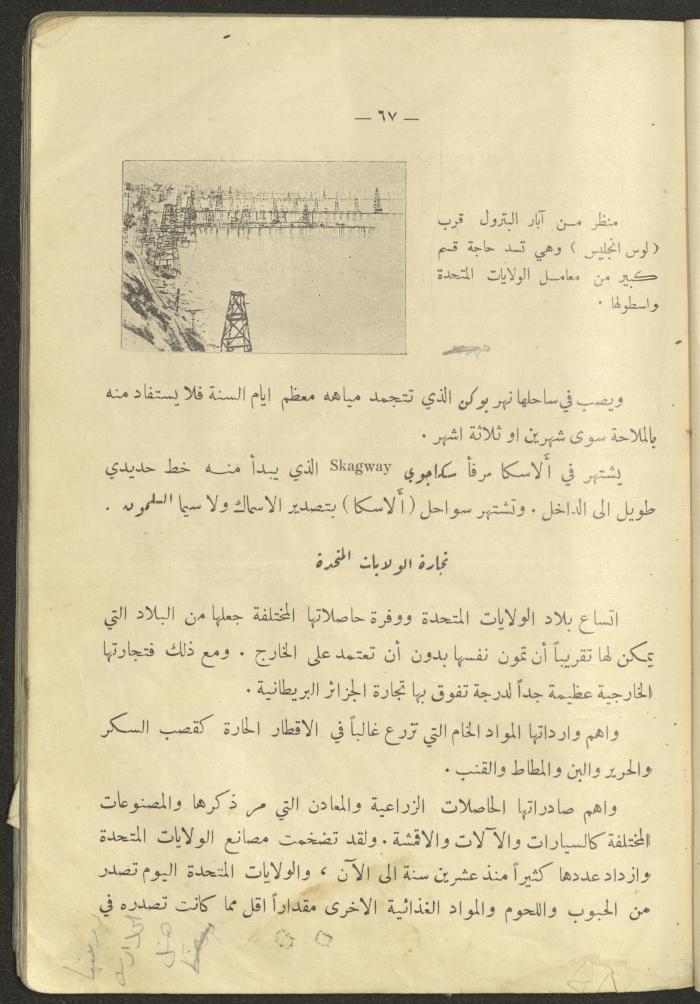 — ٦٧ —
منظر مـن آبار البترول قرب
( لوس انجليس ) وهي تسد حاجة قسم
كبير من معامـل الولايات المتحدة
واسطولها .
ويصب في ساحلها نهر يوكن الذي تتجمد مياهه معظم ايام السنة فلا يستفاد منه
بالملاحة سوى شهرين او ثلاثة اشهر .
يشتهر في ألاسكا مرفأ سكاجوي Skagway الذي يبدأ منـه خط حديدي
طويل الى الداخل . وتشتهر سواحل ( ألاسكا ) بتصدير الاسماك ولا سيما السلمون .
تجارة الولايات المتحدة
اتساع بلاد الولايات المتحدة ووفرة حاصلاتها المختلفة جعلها من البلاد التي
يمكن لها تقريباً أن تمون نفسها بدون أن تعتمد على الخارج . ومع ذلك فتجارتها
الخارجية عظيمة جداً لدرجة تفوق بها تجارة الجزائر البريطانية .
واهم وارداتها المواد الخام التي تزرع غالباً في الاقطار الحارة كقصب السكر
والحرير والبن والمطاط والقنب .
واهم صادراتها الحاصلات الزراعية والمعادن التي مر ذكرها والمصنوعات
المختلفة كالسيارات والآلات والاقمشة . ولقد تضخمت مصانع الولايات المتحدة
وازداد عددها كثيراً منذ عشرين سنة الى الآن ، والولايات المتحدة اليوم تصدر
من الحبوب واللحوم والمواد الغذائية الاخرى مقداراً اقل مما كانت تصدره في